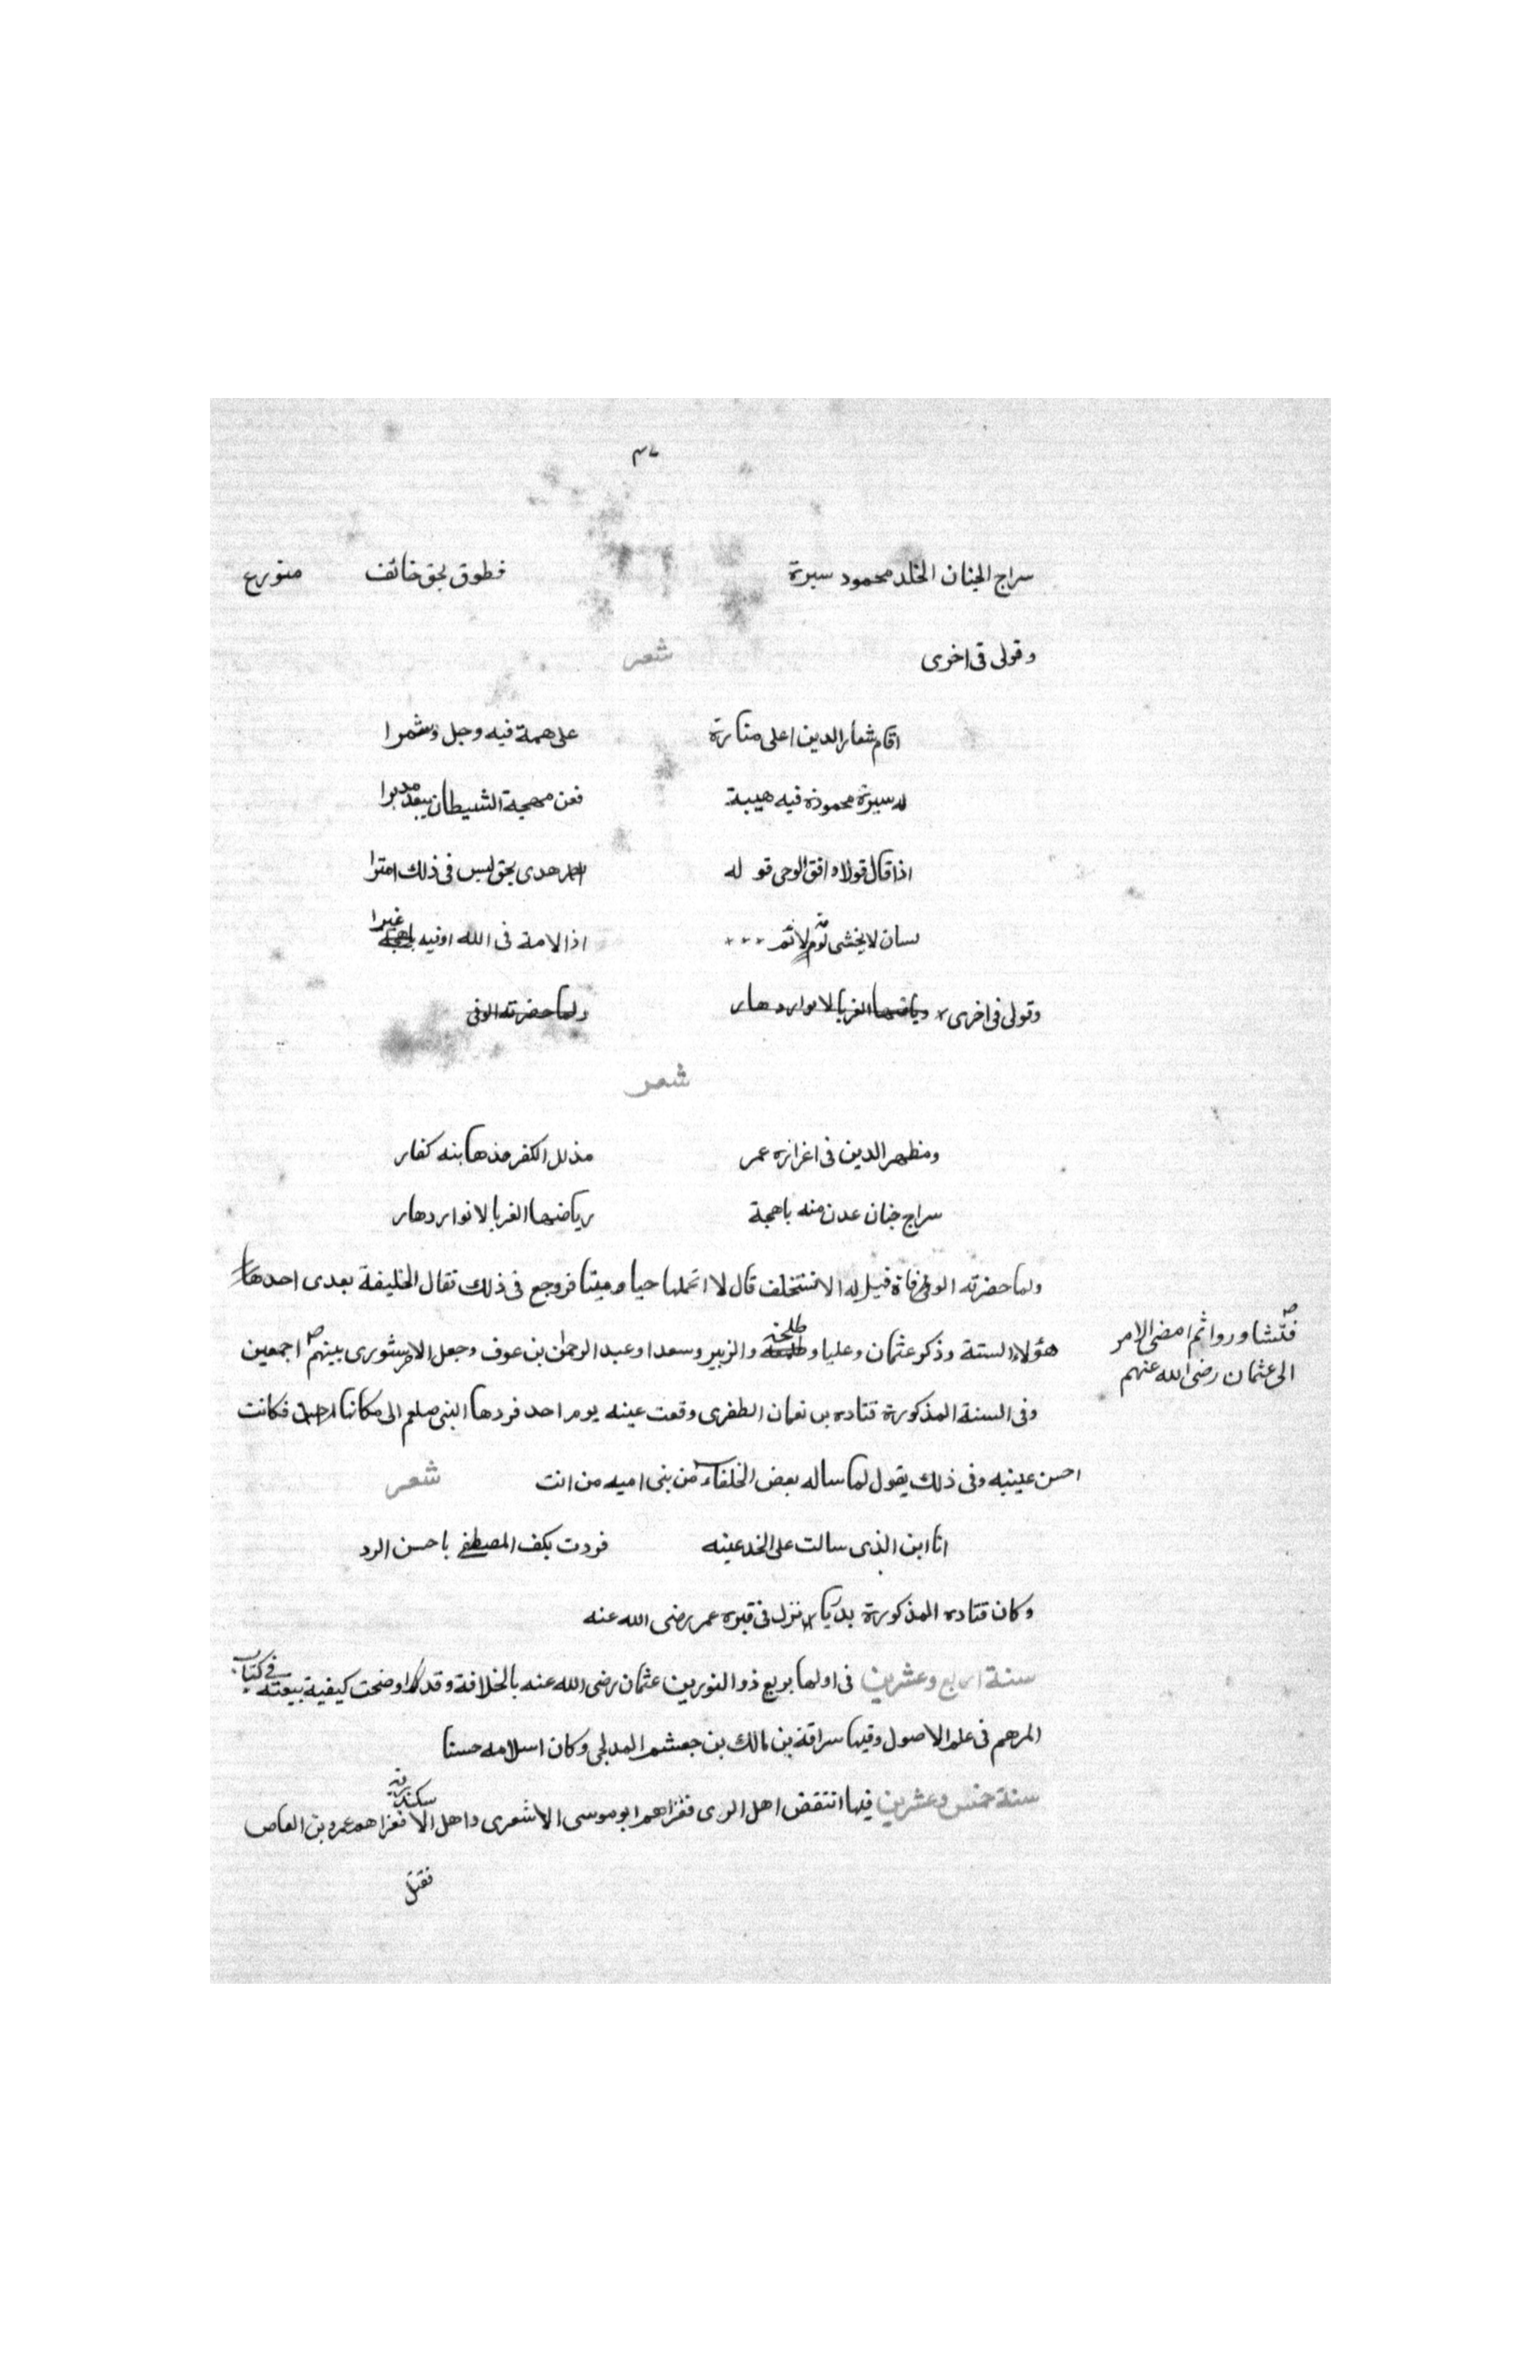 سراج الجنان الخلد محمود سيرة فطوق بحق خائف متورع
وقولى فى اخرى شعر
اقام شعار الدين اعلى منارة على همة فيه وجل وشمرا
له سيرة محمودة فيه هيبة فعن مهجة الشيطان يبعد مدبرا
اذا قال قولا وافق الوحى قوله هدى بحق ليس فى ذلك امترا
لسان لا يخشى لومة لائم اذا لامة فى الله اوفيه غيرا
وقولى فى اخرى رياضها الغر بالانوار دهار ولما حضرته الوفى
شعر
ومظهر الدين فى اغرازه عمر مذلل الكفر مذهابنه كفار
سراج جنان عدن منه باهجة رياضها الغر بالانوار دهار
ولما حضرته الوفاة قيل له الا تستخلف قال لا اتحملها حيا وميتا فروجع فى ذلك فقال الخليفة بعدى احد
هؤلاء الستة وذكر عثمان وعليا وطلحة والزبير وسعدا وعبد الرحمن بن عوف وجعل الامر شورى بينهم اجمعين
فتشاوروا ثم امضى الامر
الى عثمان رضى الله عنهم
وفى السنة المذكورة قتاده بن نعمان الظفرى وقعت عينه يوم احد فردها النبى صلعم الى مكانها فكانت
احسن عينيه وفى ذلك يقول لما ساله بعض الخلفاء من بنى اميه من انت شعر
انا ابن الذى سالت على الخد عينه فردت بكف المصطفى باحسن الرد
وكان قتاده المذكورة بدريا نزل فى قبره عمر رضى الله عنه
سنة اربع وعشرين فى اولها بويع ذو النورين عثمان رضى الله عنه بالخلافة وقد اوضحت كيفية بيعته فى كتاب
المرهم فى علم الاصول وفيها سراقة بن مالك بن جعشم المدلجى وكان اسلامه حسنا
سنة خمس وعشرين فيها انتقض اهل الرى فغزاهم ابو موسى الاشعرى واهل الاسكندرية فغزاهم عمرو بن العاص
فقتل